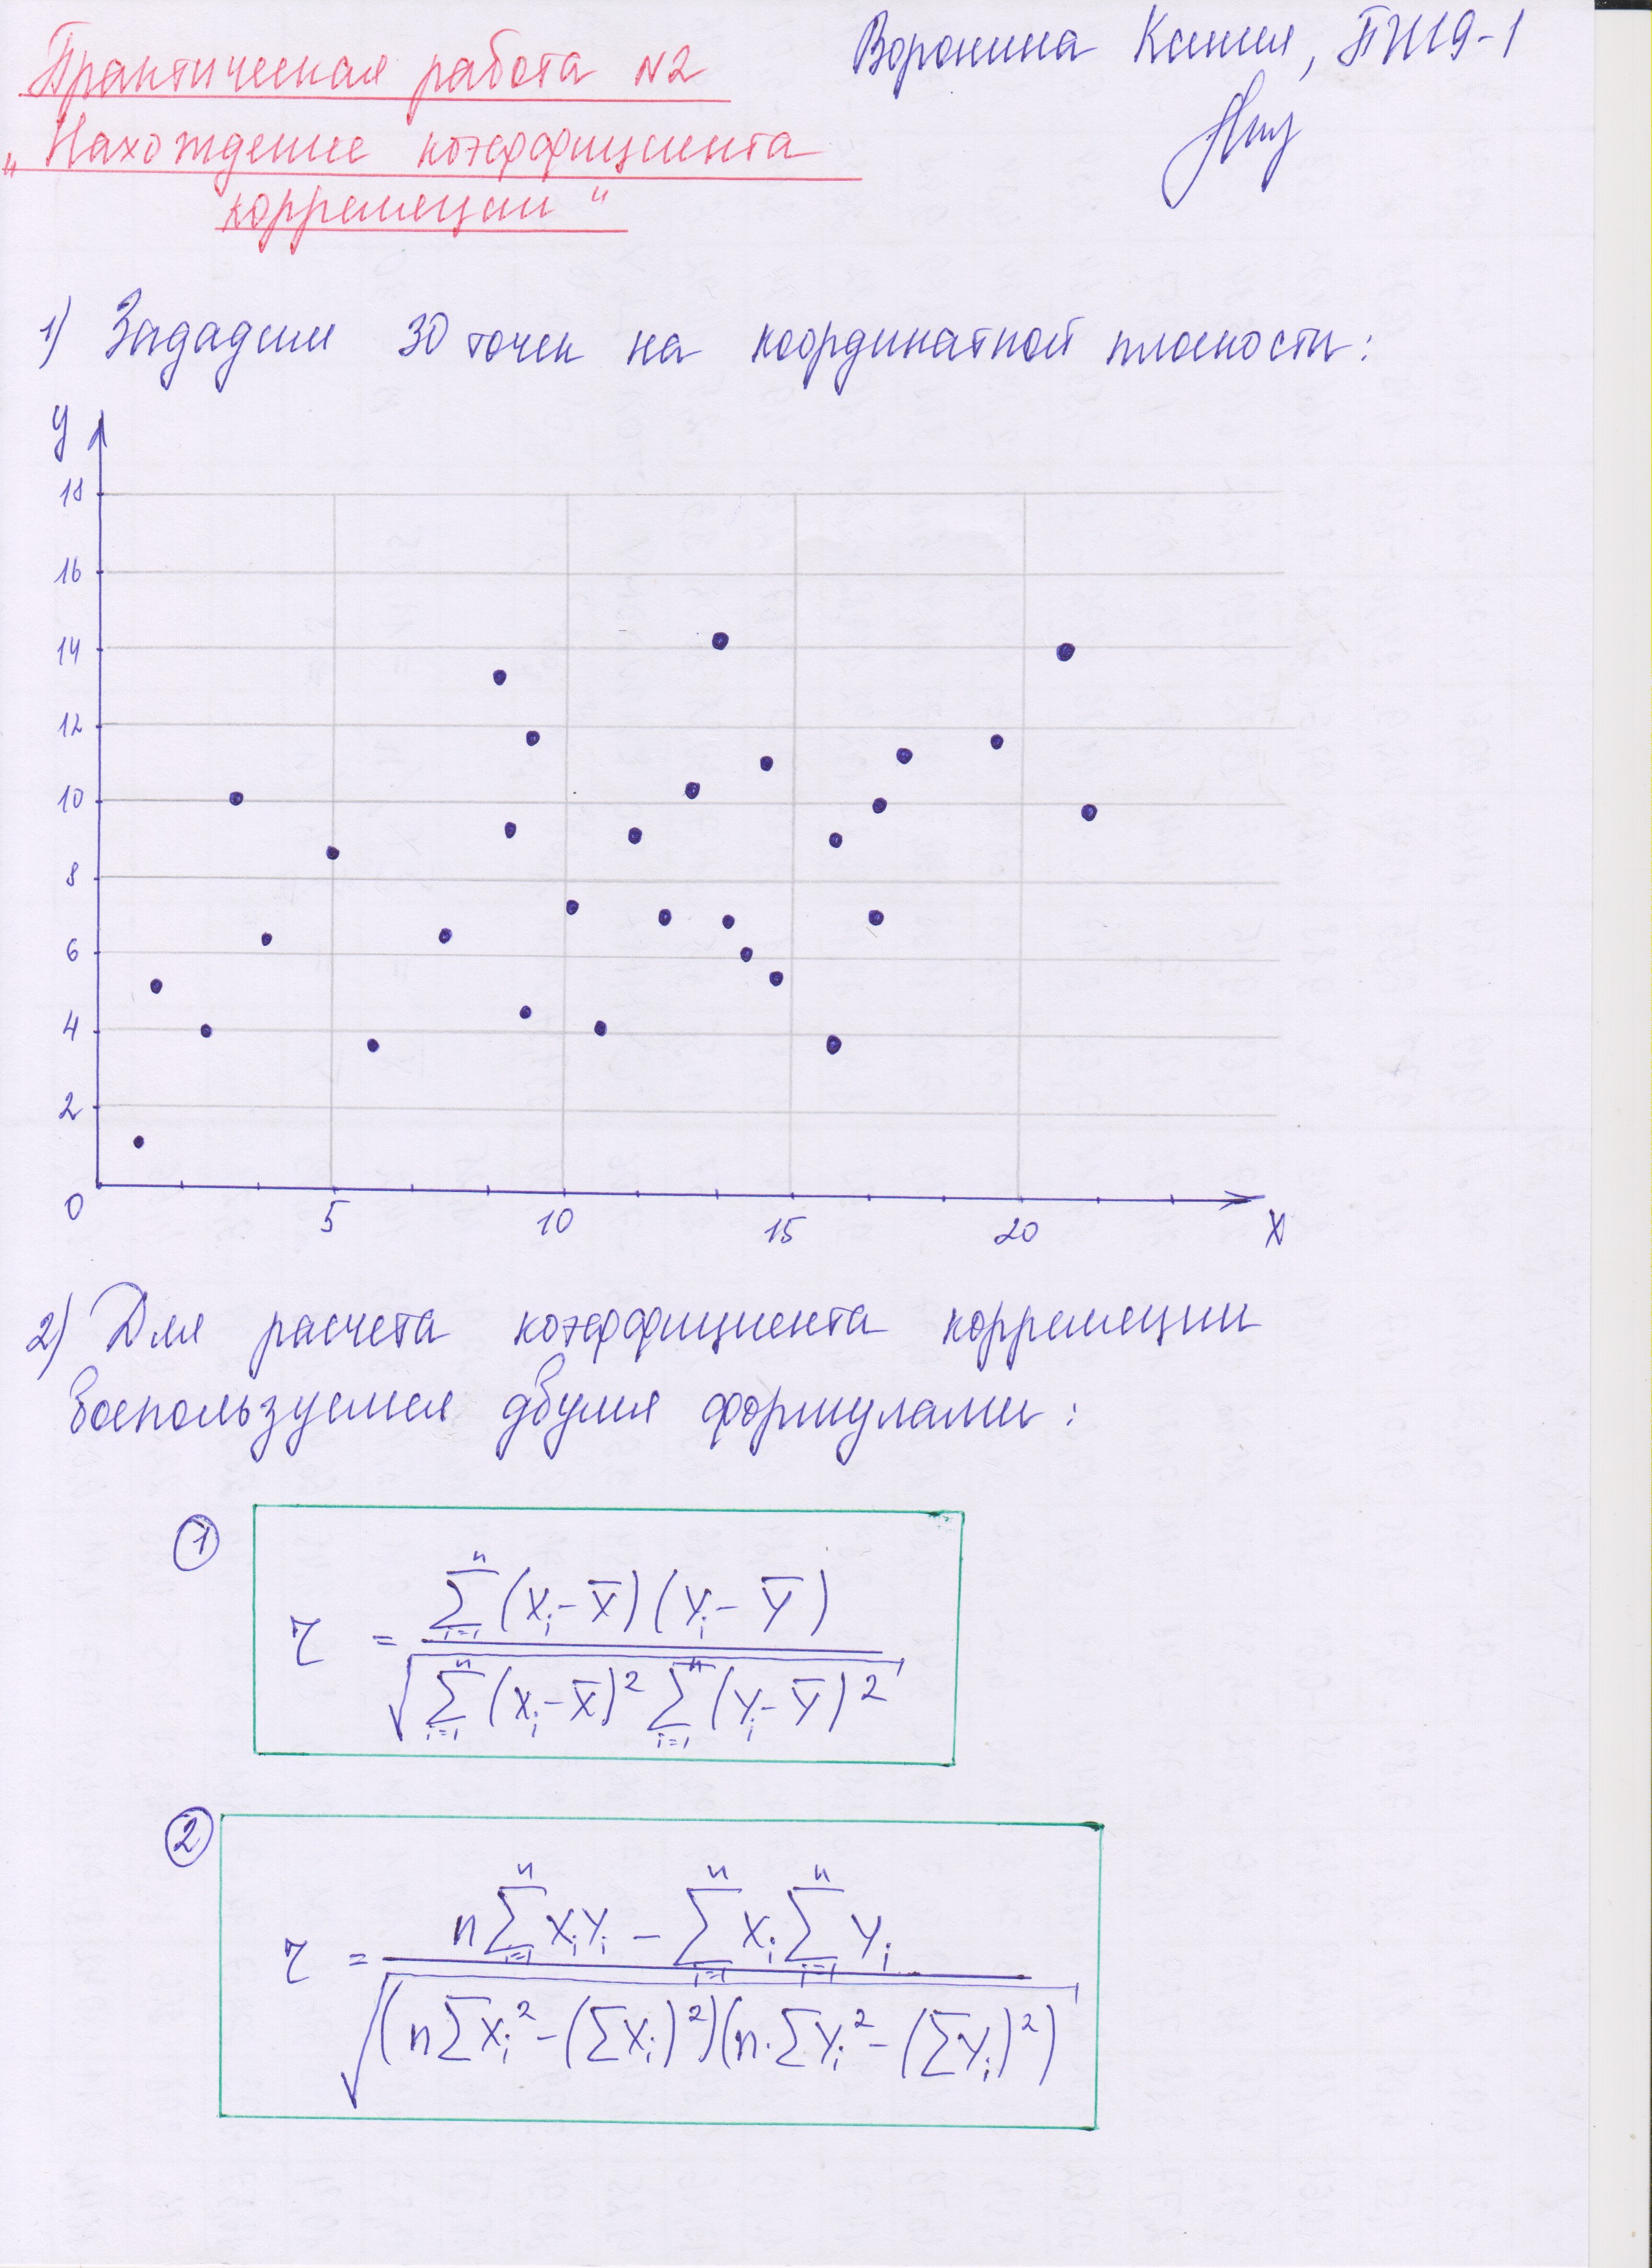 Практическая работа №2
Воронина Ксения, ПИ19-1
„Нахождение коэффициента
корреляции“
1) Зададим 30 точек на координатной плоскости:
y
18
16
14
12
10
8
6
4
2
0
5
10
15
20
X
2) Для расчета коэффициента корреляции
воспользуемся двумя формулами:
①
r = \frac{\sum_{i=1}^{n}(x_i - \overline{x})(y_i - \overline{y})}{\sqrt{\sum_{i=1}^{n}(x_i - \overline{x})^2 \sum_{i=1}^{n}(y_i - \overline{y})^2}}
②
r = \frac{n\sum_{i=1}^{n} x_i y_i - \sum_{i=1}^{n} x_i \sum_{i=1}^{n} y_i}{\sqrt{(n\sum x_i^2 - (\sum x_i)^2)(n \cdot \sum y_i^2 - (\sum y_i)^2)}}